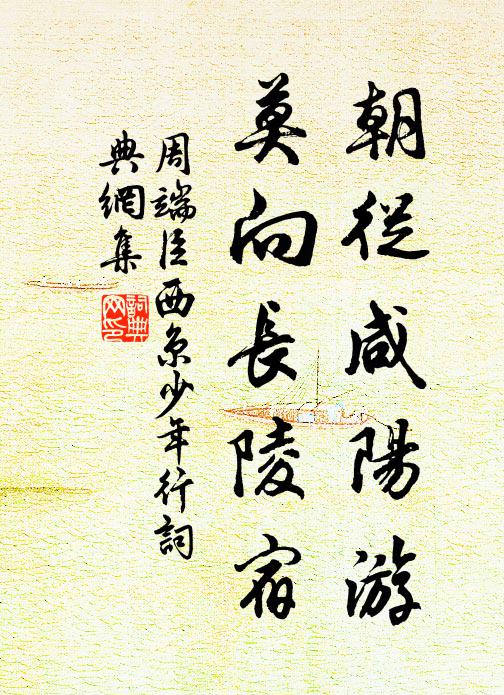 朝從咸陽游
莫向長陵宿
周端臣西京少年行詞
典網集
詞典网印